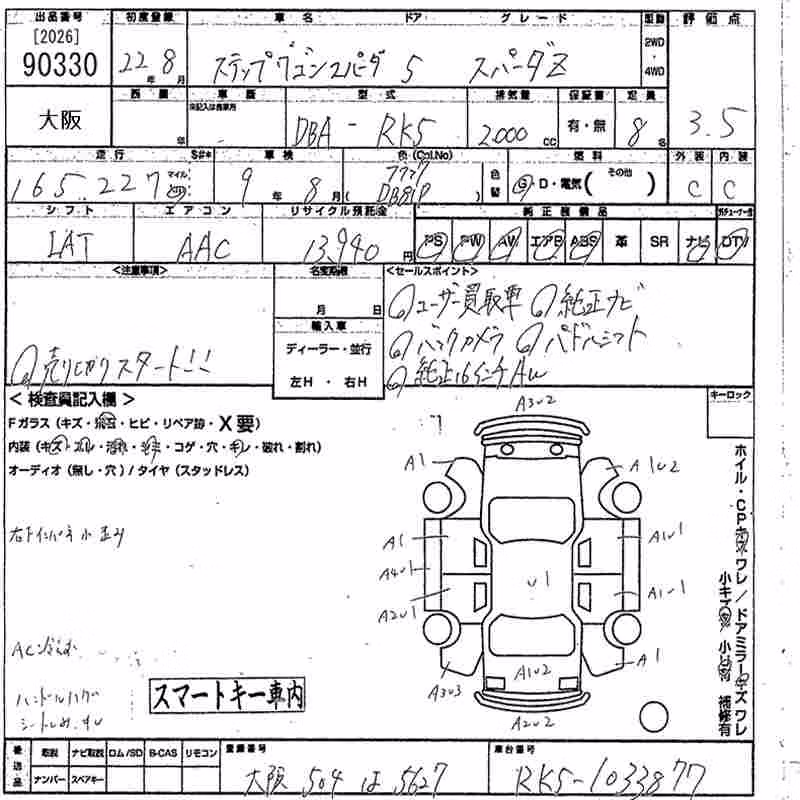 出品番号 初度登録 車名 ドア グレード 駆動 評価点
[2026]
90330
22年 8月
ステップワゴンスパーダ 5 スパーダZ
2WD・4WD
3.5
大阪
車歴 型式 排気量 保証書 定員
年 DBA - RK5 2000cc 有・無 8名
走行 S#* 車検 色(Col.No) 燃料 外装 内装
165,227 マイル km 9年 8月 ( DB81P ) 色替 G・D・電気( その他 ) C C
シフト エアコン リサイクル預託金 純正装備品
IAT AAC 13,940円
PS PW AW エアB ABS 革 SR ナビ DTV
<注意事項> 名変期限 <セールスポイント>
月 日
ユーザー買取車 純正ナビ
輸入車
バックカメラ パドルシフト
ディーラー・並行
売り切りスタート!!
左H・右H
純正16インチAW
キーロック
< 検査員記入欄 >
Fガラス (キズ・飛石・ヒビ・リペア跡・X要)
内装 (キズ・スレ・汚れ・シミ・コゲ・穴・キレ・破れ・割れ)
オーディオ (無し・穴) / タイヤ (スタッドレス)
A3U2
A1 A1U2
A1 A1U1
A4U1 U1
A2U1 A1U1
A1
A3U3 A1U2
A2U2
ホイル・CPキズ ワレ / ドアミラーキズ ワレ
小キズ 小凹 補修有
スマートキー車内
後送品 取説 ナビ取説 ロム/SD B-CAS リモコン
ナンバー スペアキー
登録番号 車台番号
大阪 504 は 5627 RK5-1033877